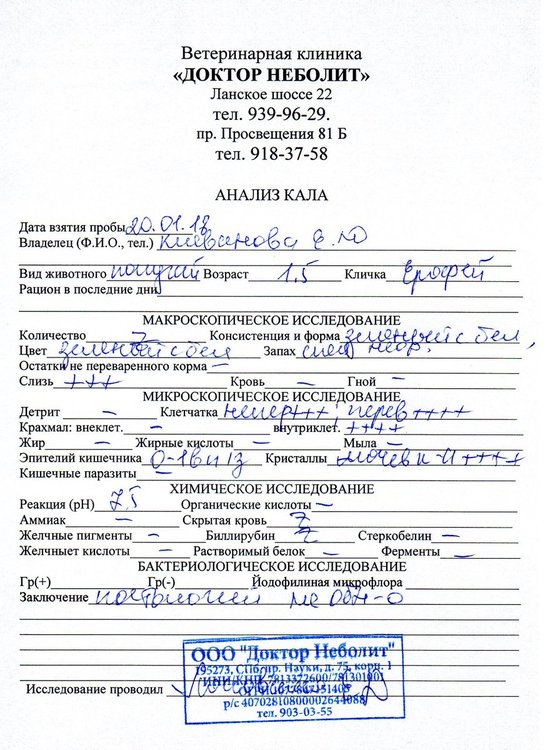 Ветеринарная клиника
«ДОКТОР НЕБОЛИТ»
Ланское шоссе 22
тел. 939-96-29.
пр. Просвещения 81 Б
тел. 918-37-58
АНАЛИЗ КАЛА
Дата взятия пробы 20.01.18
Владелец (Ф.И.О., тел.) Е.Ю
Вид животного попугай Возраст 1,5 Кличка Ерофей
Рацион в последние дни
МАКРОСКОПИЧЕСКОЕ ИССЛЕДОВАНИЕ
Количество Консистенция и форма зеленый с бел,
Цвет зеленый с бел Запах
Остатки не переваренного корма –
Слизь +++ Кровь – Гной –
МИКРОСКОПИЧЕСКОЕ ИССЛЕДОВАНИЕ
Детрит – Клетчатка непер+++, перев++++
Крахмал: внеклет. – внутриклет. ++++
Жир – Жирные кислоты – Мыла –
Эпителий кишечника 0-1 в п/з Кристаллы мочев к-и ++++
Кишечные паразиты –
ХИМИЧЕСКОЕ ИССЛЕДОВАНИЕ
Реакция (pH) 7,5 Органические кислоты –
Аммиак – Скрытая кровь
Желчные пигменты – Билирубин Стеркобелин –
Желчныет кислоты – Растворимый белок – Ферменты –
БАКТЕРИОЛОГИЧЕСКОЕ ИССЛЕДОВАНИЕ
Гр(+) Гр(-) Йодофилиная микрофлора
Заключение патологий не обн-о
ООО "Доктор Неболит"
195273, СПб, пр. Науки, д. 75, корп. 1
ИНН/КПП 7813372600/781301001
Исследование проводил
р/с 40702810800002644088
тел. 903-03-55